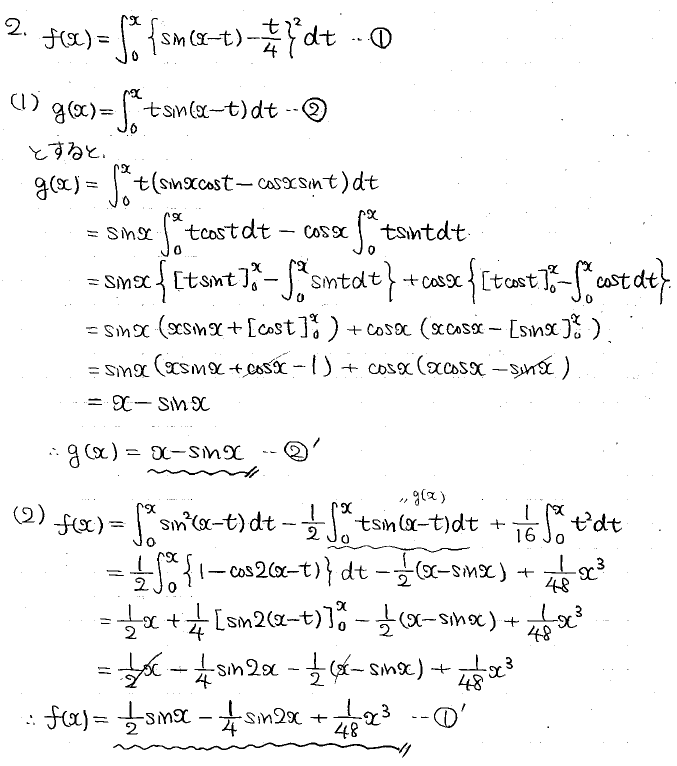 2. f(x)=∫₀ˣ{sin(x-t)-t/4}²dt ‥①
(1) g(x)=∫₀ˣtsin(x-t)dt‥②
とすると,
g(x)=∫₀ˣt(sinxcost-cosxsint)dt
=sinx∫₀ˣtcostdt-cosx∫₀ˣtsintdt
=sinx{[tsint]₀ˣ-∫₀ˣsintdt}+cosx{[tcost]₀ˣ-∫₀ˣcostdt}
=sinx(xsinx+[cost]₀ˣ)+cosx(xcosx-[sinx]₀ˣ)
=sinx(xsinx+cosx-1)+cosx(xcosx-sinx)
=x-sinx
∴g(x)=x-sinx ‥②′
〃g(x)
(2) f(x)=∫₀ˣsin²(x-t)dt-1/2∫₀ˣtsin(x-t)dt+1/16∫₀ˣt²dt
=1/2∫₀ˣ{1-cos2(x-t)}dt-1/2(x-sinx)+1/48x³
=1/2x+1/4[sin2(x-t)]₀ˣ-1/2(x-sinx)+1/48x³
=1/2x-1/4sin2x-1/2(x-sinx)+1/48x³
∴f(x)=1/2sinx-1/4sin2x+1/48x³ ‥①′